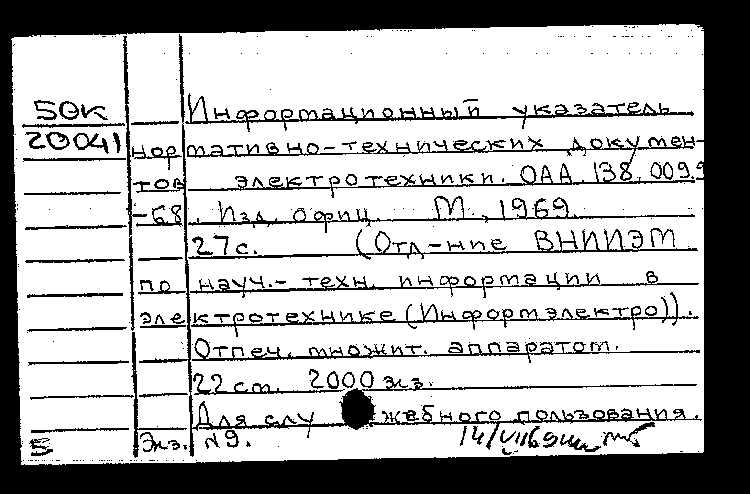 50к Информационный указатель
20041 нормативно-технических докумен-
тов электротехники. ОАА.138.009.9
-68. Изд. офиц. М., 1969.
27с. (Отд-ние ВНИИЭМ
по науч.-техн. информации в
электротехнике (Информэлектро)).
Отпеч. множит. аппаратом.
22 см. 2000 экз.
Для служебного пользования.
5 Экз. N9. 14/VII69